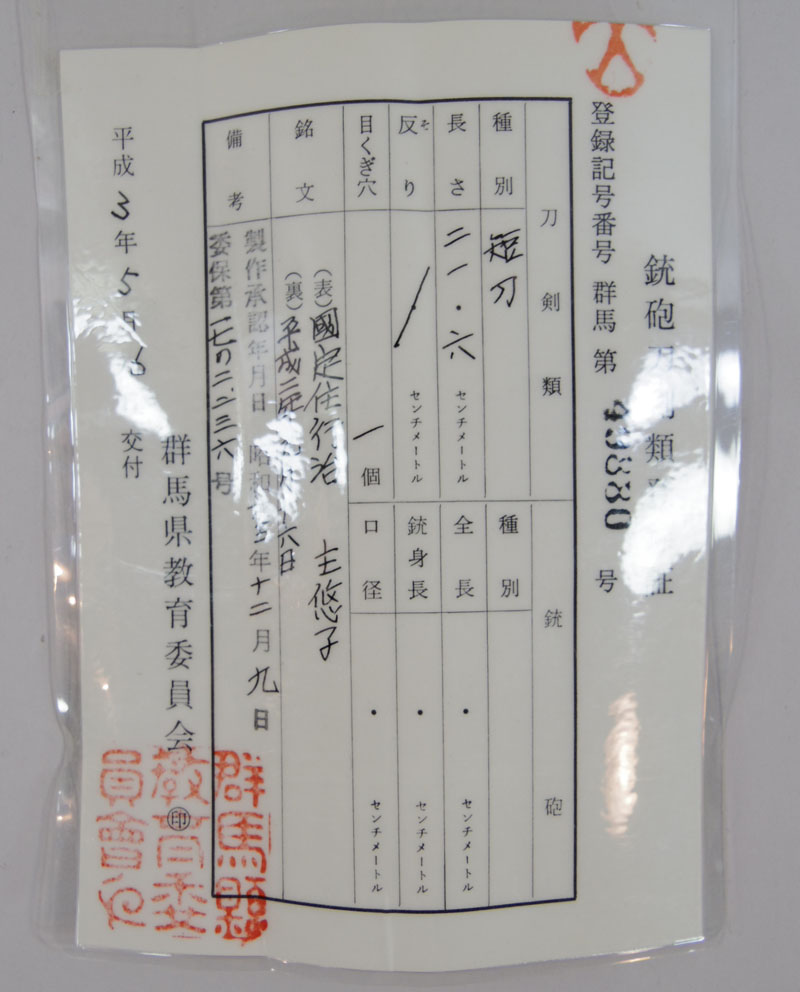 銃砲刀剣類登録証
登録記号番号 群馬 第 49880 号
刀剣類
銃砲
種別 短刀
種別
長さ 二一・六 センチメートル
全長 ・ センチメートル
反り そ ・ センチメートル
銃身長 ・ センチメートル
目くぎ穴 一個
口径 ・ センチメートル
銘文
(表)國定住行治 主悠子
(裏)平成二年 十六日
備考
製作承認年月日 昭和 年十二月九日
委保第一七の二二三六号
群馬県教育委員会 印
平成 3 年 5 月 交付
群馬縣教育委員會印